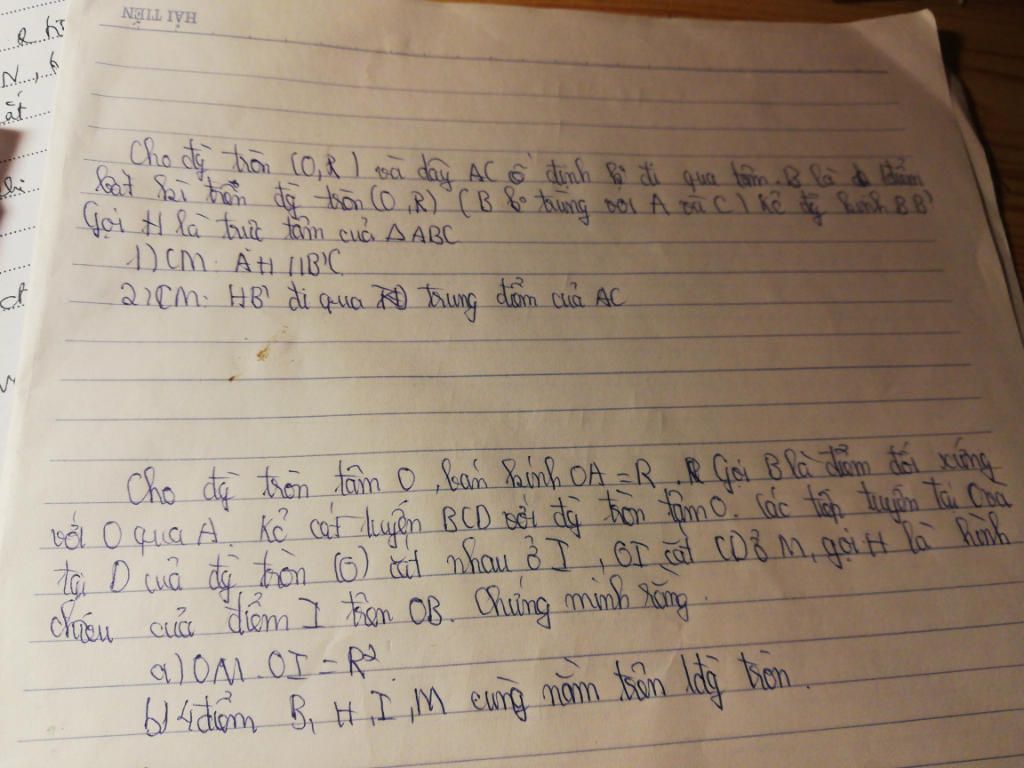 HẢI TIẾN
Cho đg tròn (O,R) và dây AC cố định ko đi qua tâm. B là điểm
bất kì trên đg tròn (O,R) (B ko trùng với A và C) kẻ đg kính BB'
Gọi H là trực tâm của △ABC
1) CM: AH // B'C
2) CM: HB' đi qua trung điểm của AC
Cho đg tròn tâm O, bán kính OA = R. Gọi B là điểm đối xứng
với O qua A. Kẻ cát tuyến BCD với đg tròn tâm O. Các tiếp tuyến tại C và
tại D của đg tròn (O) cắt nhau ở I, OI cắt CD ở M, gọi H là hình
chiếu của điểm I trên OB. Chứng minh rằng.
a) OM.OI = R².
b) 4 điểm B, H, I, M cùng nằm trên 1 đg tròn.